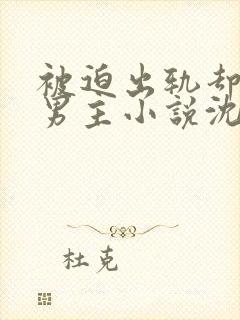 被迫出轨却
男主小說沈
杜克